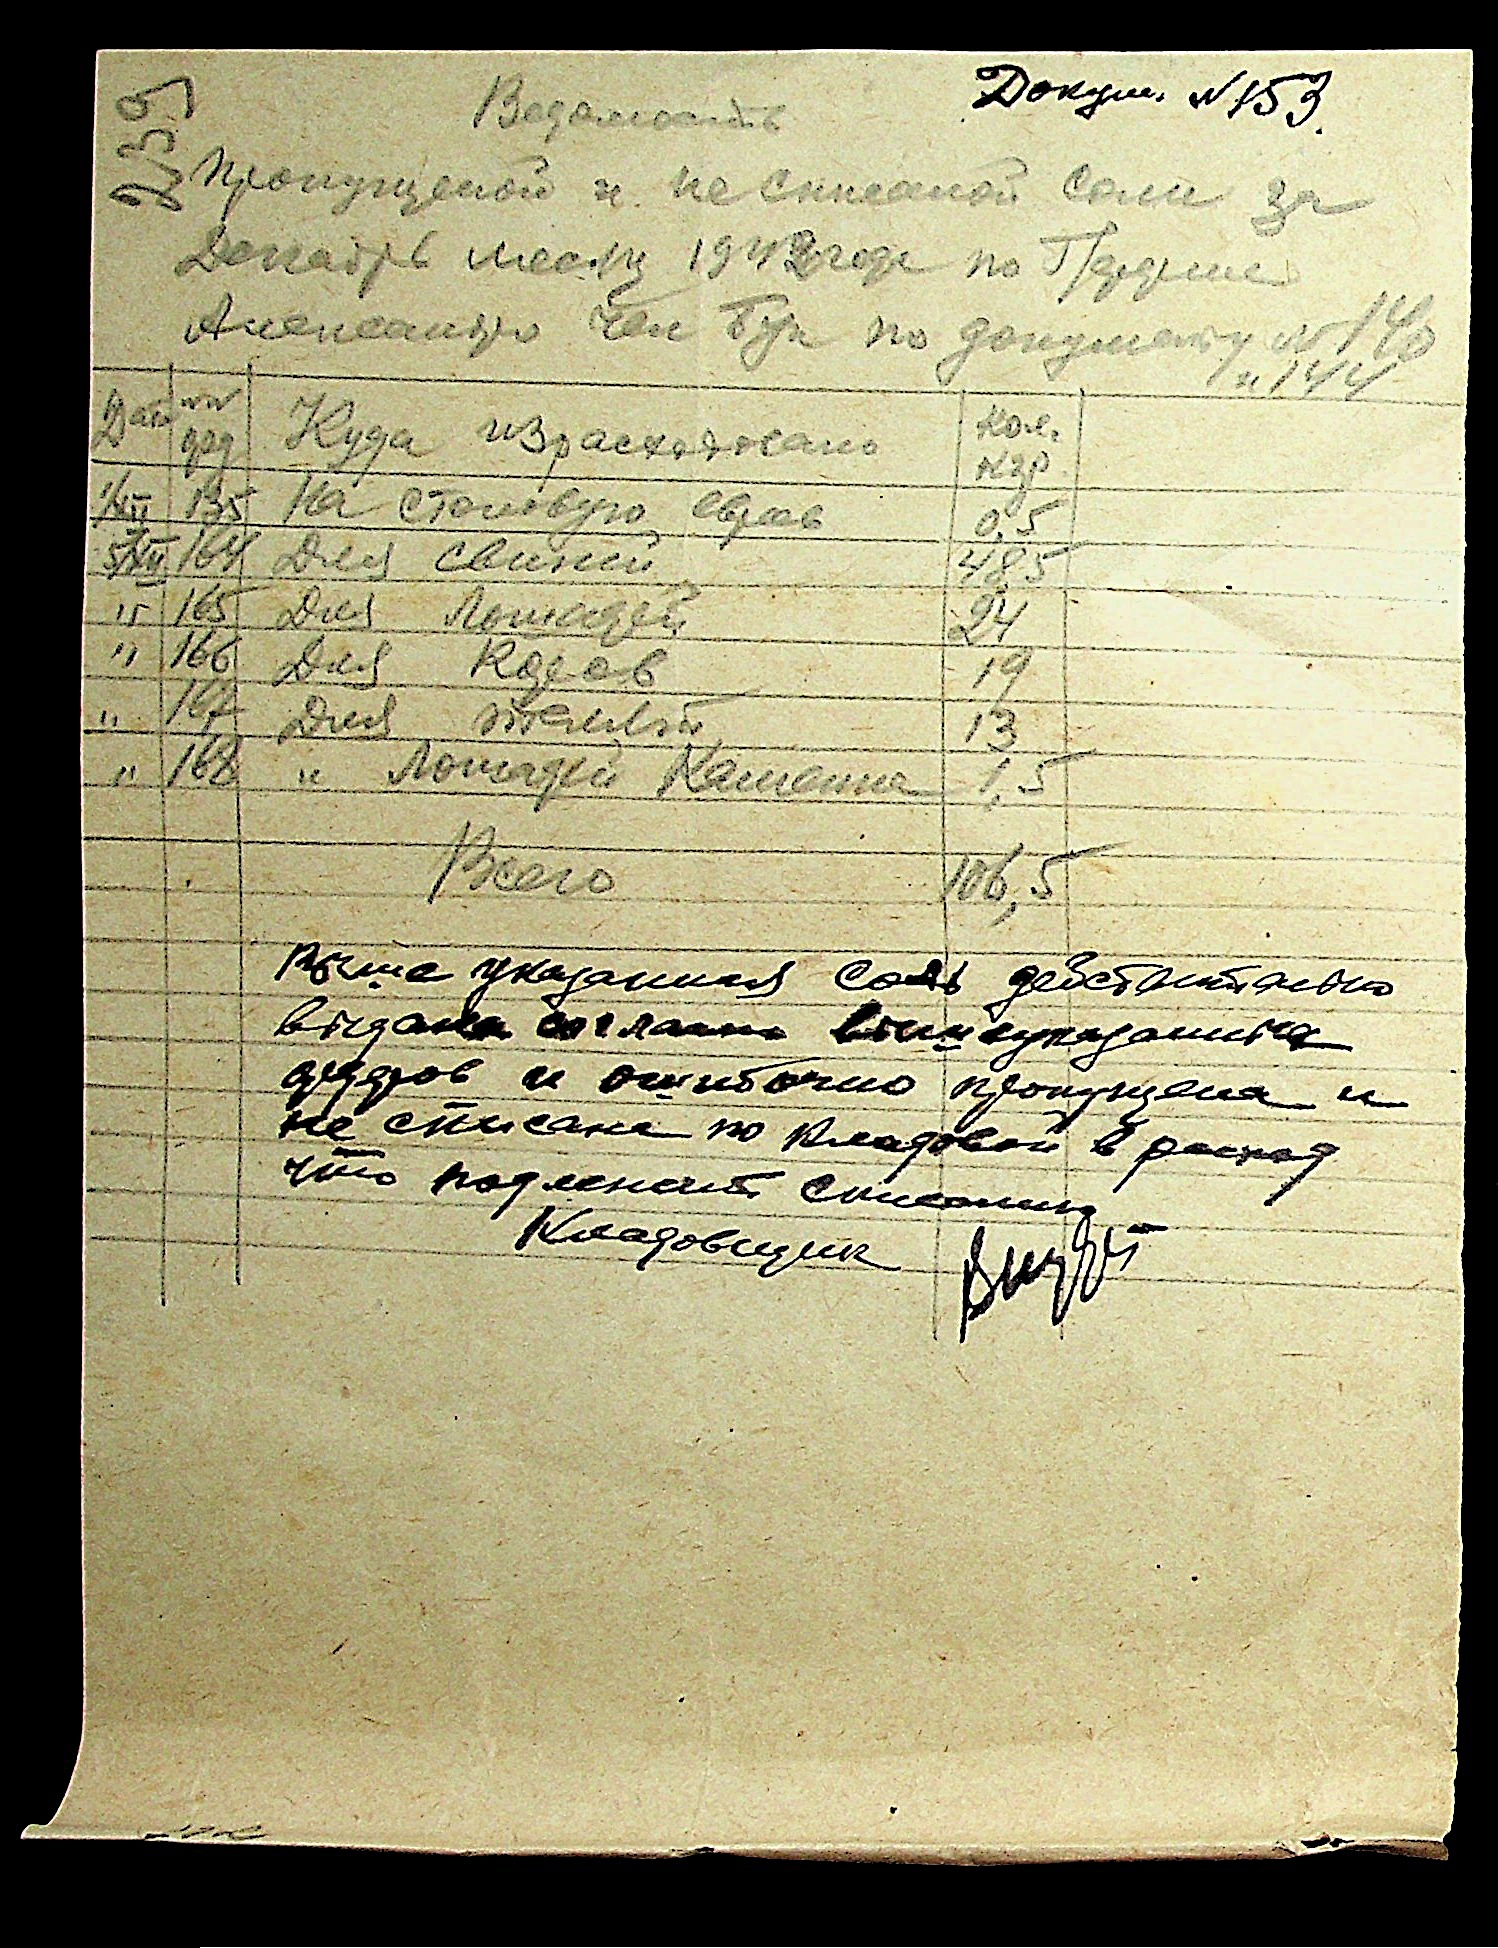 Докум. №153.
239
Ведомость
Пропущеной и не списаной соли за
Декабрь месяц 1943 года по
по документу №140
и 144
Дата №№ орд Куда израсходовано Кол. кгр.
1/XII 135 На столовую 0,5
5/XII 164 Для свиней 48,5
" 165 Для Лошадей 24
" 166 Для Коров 19
" 167 Для телят 13
" 168 " Лошадей 1,5
Всего 106,5
Выше указанная соль действительно
выдана согласно вышеуказаных
ордеров и ошибочно пропущена и
не списана по Кладовой в расход
что подлежит списанию
Кладовщик